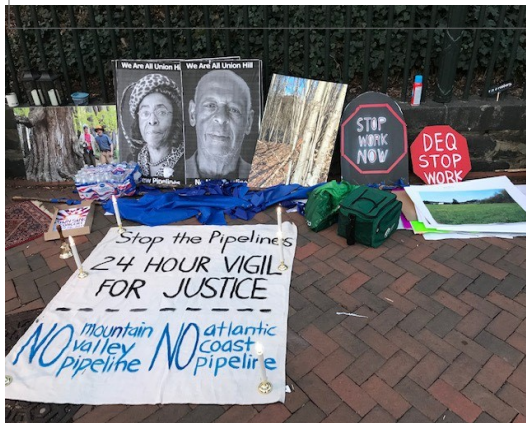 We Are All Union Hill
We Are All Union Hill
STOP
WORK
NOW
DEQ
STOP
WORK
Stop the Pipelines
24 HOUR VIGIL
FOR JUSTICE
NO mountain valley pipeline
NO atlantic coast pipeline